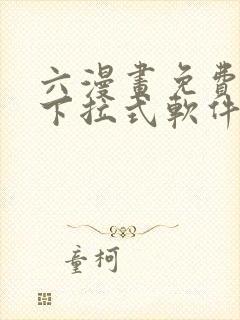 六漫畫免費
下拉式軟件
童柯